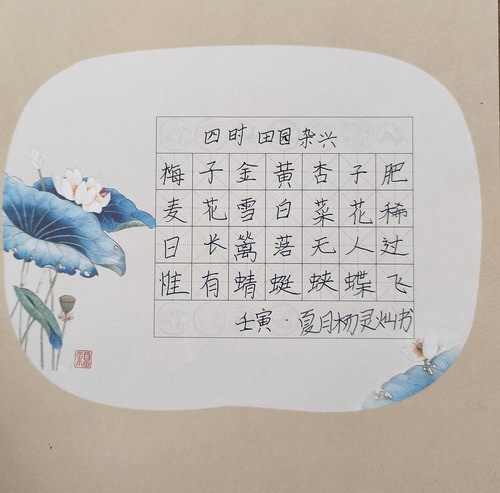 四时田园杂兴
梅子金黄杏子肥
麦花雪白菜花稀
日长篱落无人过
惟有蜻蜓蛱蝶飞
壬寅·夏月杨灵灿书